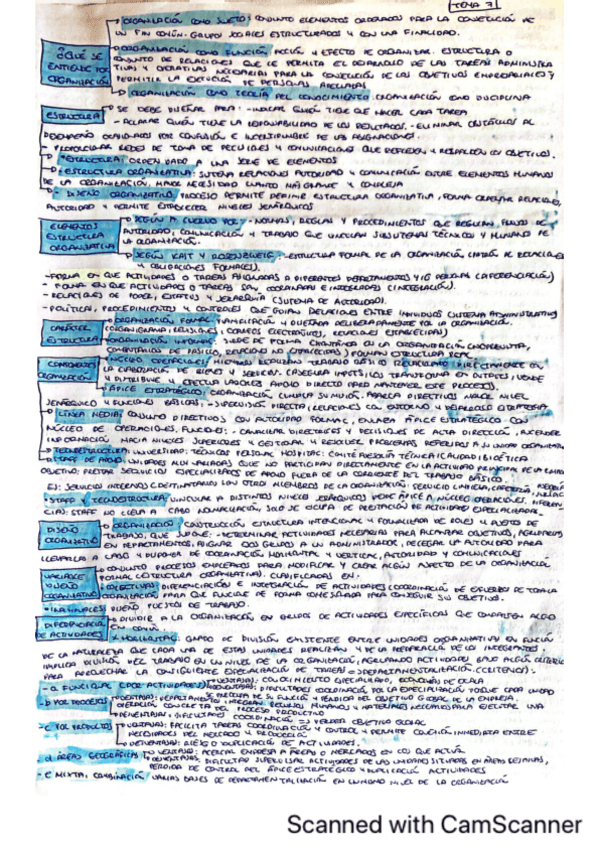 TEMA 7
ORGANIZACIÓN COMO SUJETO: CONJUNTO ELEMENTOS ORDENADOS PARA LA CONSECUCIÓN DE
UN FIN COMÚN. GRUPOS SOCIALES ESTRUCTURADOS Y CON UNA FINALIDAD.
¿QUÉ SE ENTIENDE POR ORGANIZACIÓN
ORGANIZACIÓN COMO FUNCIÓN: ACCIÓN Y EFECTO DE ORGANIZAR. ESTRUCTURA O
CONJUNTO DE RELACIONES QUE LE PERMITA EL DESARROLLO DE LAS TAREAS ADMINISTRA
TIVAS Y OPERATIVAS NECESARIAS PARA LA CONSECUCIÓN DE LOS OBJETIVOS EMPRESARIALES Y
PERMITIR LA EJECUCIÓN DE PERSONAS
ORGANIZACIÓN COMO TEORÍA DEL CONOCIMIENTO: ORGANIZACIÓN COMO DISCIPLINA
ESTRUCTURA
SE DEBE DISEÑAR PARA: - INDICAR QUIÉN TIENE QUE HACER CADA TAREA
- ACLARAR QUIÉN TIENE LA RESPONSABILIDAD DE LOS RESULTADOS. - ELIMINAR OBSTÁCULOS AL
DESEMPEÑO OCASIONADOS POR CONFUSIÓN E INCERTIDUMBRE DE LAS ASIGNACIONES.
PROPORCIONAR REDES DE TOMA DE DECISIONES Y COMUNICACIONES QUE REFLEJEN Y RESPALDEN LOS OBJETIVOS.
ESTRUCTURA: ORDEN DADO A UNA SERIE DE ELEMENTOS
ESTRUCTURA ORGANIZATIVA: SISTEMA RELACIONES AUTORIDAD Y COMUNICACIÓN ENTRE ELEMENTOS HUMANOS
DE LA ORGANIZACIÓN, MAYOR NECESIDAD CUANTO MÁS GRANDE Y COMPLEJA
DISEÑO ORGANIZATIVO: PROCESO PERMITE DEFINIR ESTRUCTURA ORGANIZATIVA, FORMA ORDENAR RELACIONES,
AUTORIDAD Y PERMITE ESTABLECER NIVELES JERÁRQUICOS
ELEMENTOS ESTRUCTURA ORGANIZATIVA
SEGÚN A CUERVO 2004: - NORMAS, REGLAS Y PROCEDIMIENTOS QUE REGULAN FLUJOS DE
AUTORIDAD, COMUNICACIÓN Y TRABAJO QUE VINCULAN SUBSISTEMAS TÉCNICO Y HUMANO DE
LA ORGANIZACIÓN.
SEGÚN KAST Y ROSENZWEIG: - ESTRUCTURA FORMAL DE LA ORGANIZACIÓN
Y OBLIGACIONES FORMALES).
- FORMA EN QUE ACTIVIDADES O TAREAS ASIGNADAS A DIFERENTES DEPARTAMENTOS Y/O PERSONAS (DIFERENCIACIÓN)
- FORMA EN QUE ACTIVIDADES O TAREAS SON COORDINADAS E INTEGRADAS (INTEGRACIÓN).
- RELACIONES DE PODER, ESTATUS Y JERARQUÍA (SISTEMA DE AUTORIDAD).
- POLÍTICAS, PROCEDIMIENTOS Y CONTROLES QUE GUÍAN RELACIONES ENTRE INDIVIDUOS (SISTEMA ADMINISTRATIVO)
ESTRUCTURA
ORGANIZACIÓN FORMAL: PLANIFICACIÓN Y DISEÑADA DELIBERADAMENTE POR LA ORGANIZACIÓN.
(ORGANIGRAMA, REUNIONES, CORREOS ELECTRÓNICOS, RELACIONES ESPECÍFICAS)
ORGANIZACIÓN INFORMAL: SURGE DE FORMA ESPONTÁNEA EN LA ORGANIZACIÓN
FORMAN ESTRUCTURA REAL.
COMPONENTES ORGANIZACIÓN
NÚCLEO OPERACIONES: MIEMBROS REALIZAN TRABAJO BÁSICO RELACIONADO DIRECTAMENTE CON
LA ELABORACIÓN DE BIENES Y SERVICIOS. (ASEGURA INPUTS, LOS TRANSFORMA EN OUTPUTS, VENDE
Y DISTRIBUYE Y EFECTÚA LABORES APOYO DIRECTO PARA MANTENER ESTE PROCESO).
ÁPICE ESTRATÉGICO: ORGANIZACIÓN CUMPLA SU MISIÓN. ABARCA DIRECTIVOS MAYOR NIVEL
JERÁRQUICO Y FUNCIONES BÁSICAS: - SUPERVISIÓN DIRECTA, RELACIONES CON ENTORNO Y DESARROLLO ESTRATEGIA
LÍNEA MEDIA: CONJUNTO DIRECTIVOS CON AUTORIDAD FORMAL, ENLAZA ÁPICE ESTRATÉGICO CON
NÚCLEO DE OPERACIONES. FUNCIONES: - CANALIZAR DIRECTRICES Y DECISIONES DE ALTA DIRECCIÓN, ASCENDER
INFORMACIÓN HACIA NIVELES SUPERIORES Y GESTIONAR Y RESOLVER PROBLEMAS REFERIDOS A SU UNIDAD ORGANIZATIVA
TECNOESTRUCTURA: UNIVERSIDAD: TÉCNICOS PERSONAL HOSPITAL: COMITÉ ASESORÍA TÉCNICA/CALIDAD/BIOÉTICA
STAFF DE APOYO: UNIDADES ESPECIALIZADAS QUE NO PARTICIPAN DIRECTAMENTE EN LA ACTIVIDAD PRINCIPAL DE LA EMPRESA
OBJETIVO: PRESTAR SERVICIOS ESPECIALIZADOS DE APOYO FUERA DE LA CORRIENTE DEL TRABAJO BÁSICO.
EJ: SERVICIOS INTERNOS CUYOS DESTINATARIOS SON OTROS MIEMBROS DE LA ORGANIZACIÓN: SERVICIO LIMPIEZA, CAFETERÍA
STAFF Y TECNOESTRUCTURA: VINCULAR A DISTINTOS NIVELES JERÁRQUICOS DESDE ÁPICE A NÚCLEO OPERACIONES.
CIAS: STAFF NO LLEVA A CABO NORMALIZACIÓN, SOLO SE OCUPA DE PRESTACIÓN DE ACTIVIDAD ESPECIALIZADA.
DISEÑO ORGANIZATIVO
ORGANIZACIÓN: CONSTRUCCIÓN ESTRUCTURA INTENCIONAL Y FORMALIZADA DE ROLES Y PUESTOS DE
TRABAJO, QUE SUPONE: - DETERMINAR ACTIVIDADES NECESARIAS PARA ALCANZAR OBJETIVOS, AGRUPARLAS
EN DEPARTAMENTOS, ASIGNAR ESOS GRUPOS A UN ADMINISTRADOR, DELEGAR LA AUTORIDAD PARA
LLEVARLA A CABO Y DISPONER DE COORDINACIÓN HORIZONTAL Y VERTICAL, AUTORIDAD Y COMUNICACIONES
VARIABLES DISEÑO ORGANIZATIVO
CONJUNTO PROCESOS EMPLEADOS PARA MODIFICAR Y CREAR ALGÚN ASPECTO DE LA ORGANIZACIÓN
FORMAL (ESTRUCTURA ORGANIZATIVA). CLASIFICADAS EN:
COLECTIVAS: DIFERENCIACIÓN E INTEGRACIÓN DE ACTIVIDADES (COORDINACIÓN DE ESFUERZOS DE TODA LA
ORGANIZACIÓN) PARA QUE FUNCIONE DE FORMA CONSOLIDADA PARA CONSEGUIR SU OBJETIVO.
- INDIVIDUALES: DISEÑO PUESTOS DE TRABAJO.
DIFERENCIACIÓN DE ACTIVIDADES
DIVIDIR A LA ORGANIZACIÓN EN GRUPOS DE ACTIVIDADES ESPECÍFICAS QUE COMPARTEN ALGO
EN COMÚN.
HORIZONTAL: GRADO DE DIVISIÓN EXISTENTE ENTRE UNIDADES ORGANIZATIVAS EN FUNCIÓN
DE LA NATURALEZA QUE CADA UNA DE ESTAS UNIDADES REALIZAN Y DE LA PREPARACIÓN DE LOS INTEGRANTES.
IMPLICA DIVISIÓN DEL TRABAJO EN UN NIVEL DE LA ORGANIZACIÓN, AGRUPANDO ACTIVIDADES BAJO ALGÚN CRITERIO
PARA APROVECHAR LA CONSIGUIENTE ESPECIALIZACIÓN DE TAREAS → DEPARTAMENTALIZACIÓN (CRITERIOS).
- a FUNCIONAL (POR ACTIVIDADES) VENTAJAS: CONOCIMIENTO ESPECIALIZADO, ECONOMÍAS DE ESCALA
DESVENTAJAS: DIFICULTADES COORDINACIÓN, POR LA ESPECIALIZACIÓN Y QUE CADA UNIDAD
DE SU FUNCIÓN Y PERDIDA DEL OBJETIVO GLOBAL DE LA EMPRESA.
- b POR PROCESOS
OPERACIÓN CONCRETA QUE INTEGRAN RECURSOS HUMANOS Y MATERIALES NECESARIOS PARA EJECUTAR UNA
PROCESO PRODUCTIVO
DESVENTAJAS: DIFICULTADES COORDINACIÓN → PERDER OBJETIVO GLOBAL
- c POR PRODUCTOS
VENTAJAS: FACILITA TAREAS COORDINACIÓN Y CONTROL Y PERMITE CONEXIÓN INMEDIATA ENTRE
NECESIDADES DEL MERCADO Y PRODUCCIÓN
DESVENTAJAS: RIESGO DUPLICACIÓN DE ACTIVIDADES.
- d ÁREAS GEOGRÁFICAS
VENTAJAS: ACERCAR EMPRESA A ÁREAS O MERCADOS EN LOS QUE ACTÚA
DESVENTAJAS: DIFICULTAD SUPERVISAR ACTIVIDADES DE LAS UNIDADES SITUADAS EN ÁREAS LEJANAS,
PÉRDIDA DE CONTROL DEL ÁPICE ESTRATÉGICO Y DUPLICACIÓN ACTIVIDADES
- e MIXTA: COMBINACIÓN VARIAS BASES DE DEPARTAMENTALIZACIÓN EN UN MISMO NIVEL DE LA ORGANIZACIÓN
Scanned with CamScanner